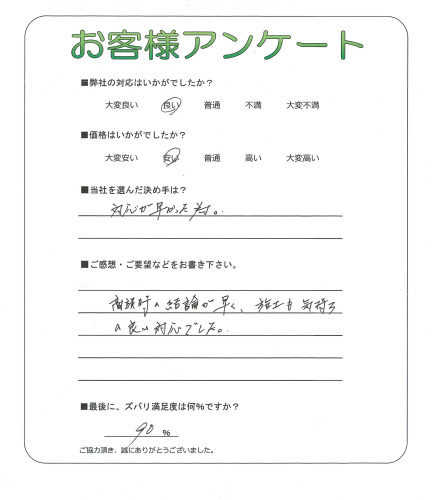 お客様アンケート
■弊社の対応はいかがでしたか？
大変良い 良い 普通 不満 大変不満
■価格はいかがでしたか？
大変安い 安い 普通 高い 大変高い
■当社を選んだ決め手は？
対応が早かった為。
■ご感想・ご要望などをお書き下さい。
商談時の結論が早く、施工も気持ち
の良い対応でした。
■最後に、ズバリ満足度は何%ですか？
90 %
ご協力頂き、誠にありがとうございました。